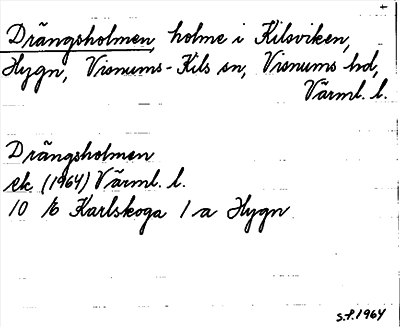 Drängsholmen, holme i Kilsviken,
Hygn, Visnums-Kils sn, Visnums hd,
Värml. l.
Drängsholmen
ek (1964) Värml. l.
10 E Karlskoga 1 a Hygn
S.P. 1964